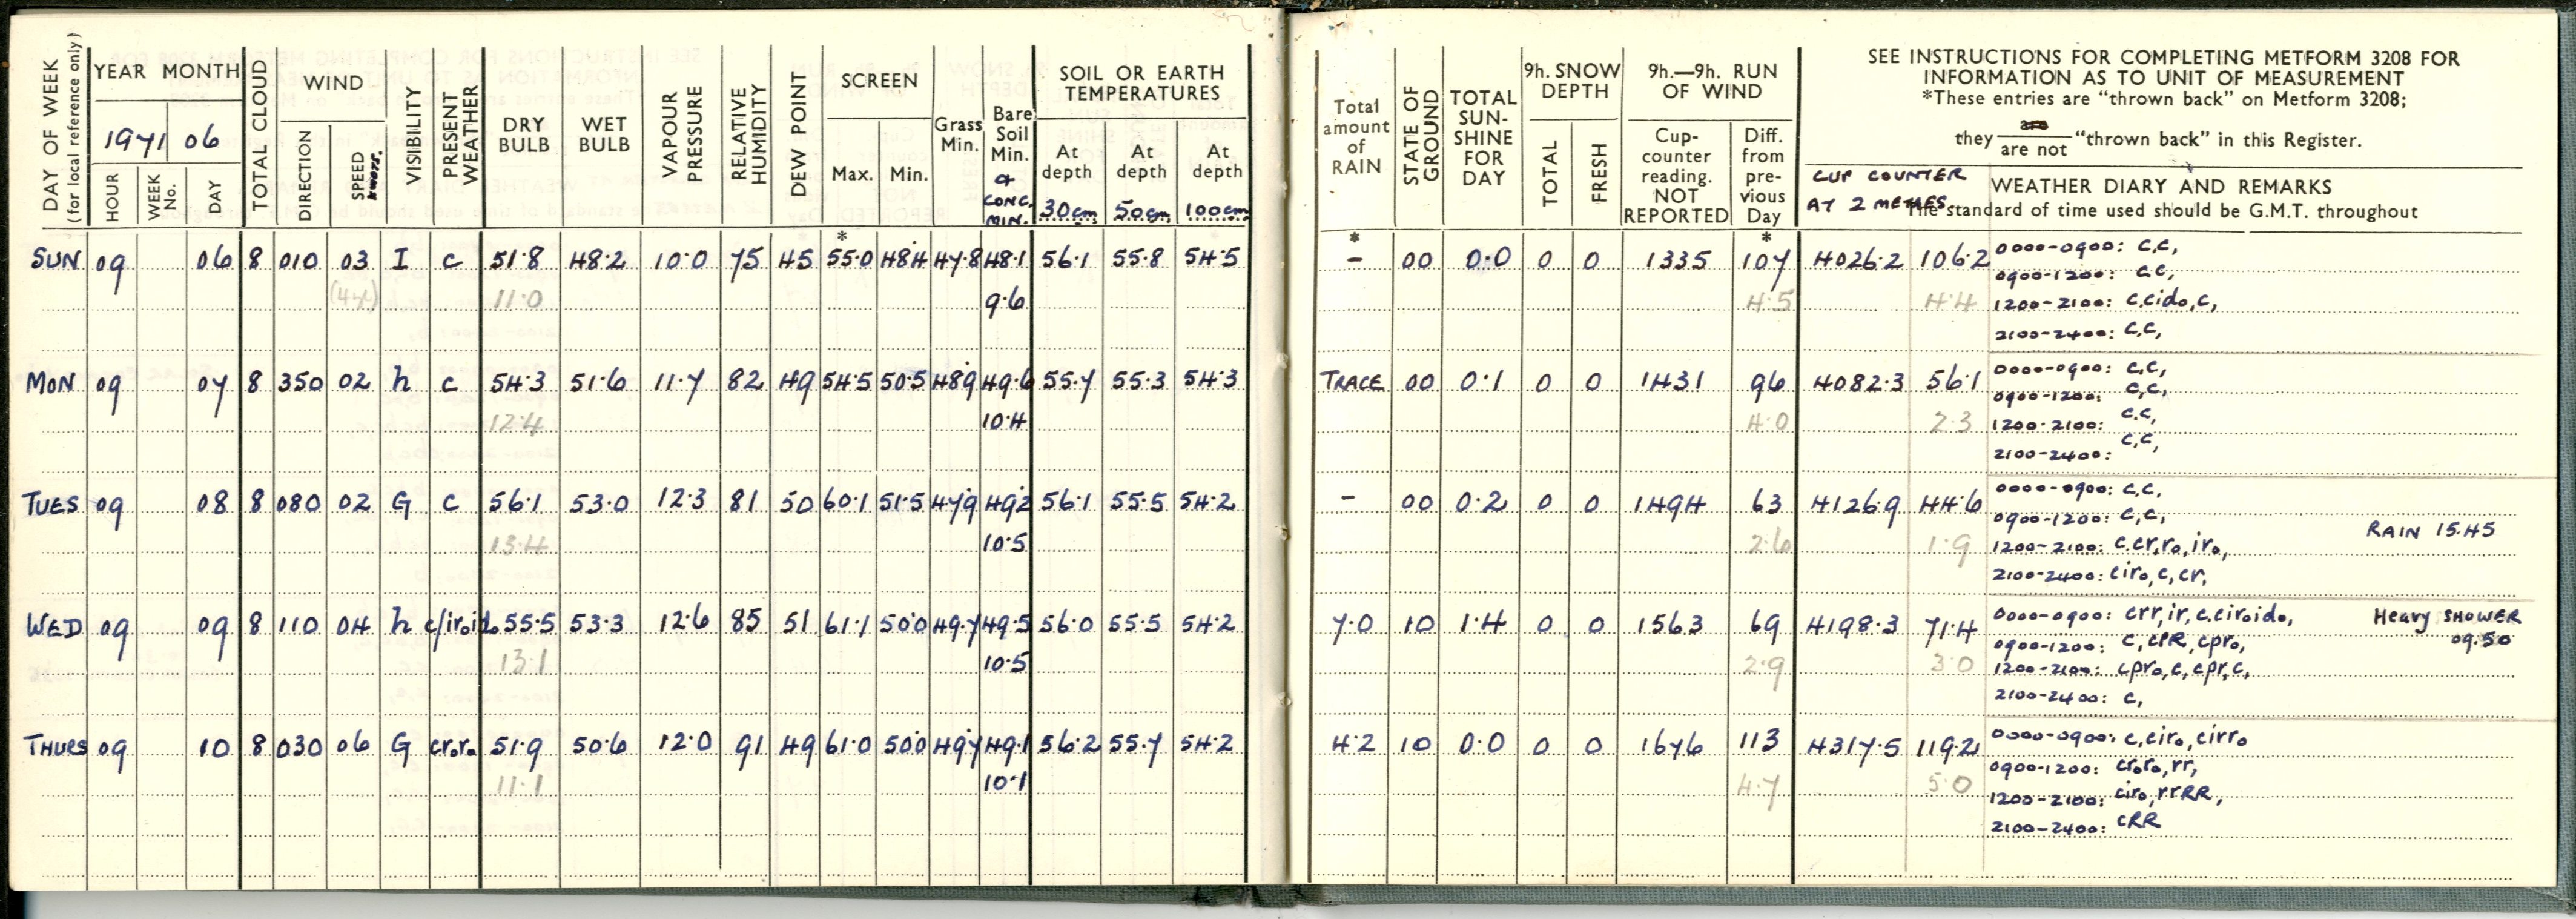 DAY OF WEEK
(for local reference only)
YEAR MONTH
1971 06
HOUR WEEK No. DAY
TOTAL CLOUD
WIND
DIRECTION SPEED KNOTS.
VISIBILITY
PRESENT WEATHER
DRY BULB
WET BULB
VAPOUR PRESSURE
RELATIVE HUMIDITY
DEW POINT
SCREEN
Max. Min.
Grass Min.
Bare Soil Min. & CONC. MIN.
SOIL OR EARTH TEMPERATURES
At depth 30cm At depth 50cm At depth 100cm
Total amount of RAIN
STATE OF GROUND
TOTAL SUN-SHINE FOR DAY
9h. SNOW DEPTH
TOTAL FRESH
9h.—9h. RUN OF WIND
Cup-counter reading. NOT REPORTED
Diff. from pre-vious Day
SEE INSTRUCTIONS FOR COMPLETING METFORM 3208 FOR
INFORMATION AS TO UNIT OF MEASUREMENT
*These entries are "thrown back" on Metform 3208;
they are / are not "thrown back" in this Register.
CUP COUNTER
AT 2 METRES
WEATHER DIARY AND REMARKS
The standard of time used should be G.M.T. throughout
* * *
SUN 09 06 8 010 03 I c 51.8 48.2 10.0 75 45 55.0 48.4 47.8 48.1 56.1 55.8 54.5 - 00 0.0 0 0 1335 107 4026.2 106.2 0000-0900: c,c,
0900-1200: c,c,
11.0 9.6 4.5 4.4 1200-2100: c,cido,c,
2100-2400: c,c,
MON 09 07 8 350 02 h c 54.3 51.6 11.7 82 49 54.5 50.5 48.9 49.6 55.7 55.3 54.3 TRACE 00 0.1 0 0 1431 96 4082.3 56.1 0000-0900: c,c,
0900-1200: c,c,
12.4 10.4 4.0 2.3 1200-2100: c,c,
2100-2400: c,c,
TUES 09 08 8 080 02 G c 56.1 53.0 12.3 81 50 60.1 51.5 47.9 49.2 56.1 55.5 54.2 - 00 0.2 0 0 1494 63 4126.9 44.6 0000-0900: c,c,
0900-1200: c,c, RAIN 15.45
13.4 10.5 2.6 1.9 1200-2100: c.cr,ro,iro,
2100-2400: ciro,c,cr,
WED 09 09 8 110 04 h 55.5 53.3 12.6 85 51 61.1 50.0 49.7 49.5 56.0 55.5 54.2 7.0 10 1.4 0 0 1563 69 4198.3 71.4 0000-0900: crr,ir,c.ciroido, Heavy SHOWER
0900-1200: c,cPR,cpro, 09.50
13.1 10.5 2.9 3.0 1200-2100: cpro,c,cpr,c,
2100-2400: c,
THURS 09 10 8 030 06 G croro 51.9 50.6 12.0 91 49 61.0 50.0 49.7 49.1 56.2 55.7 54.2 4.2 10 0.0 0 0 1676 113 4317.5 119.2 0000-0900: c,ciro,cirro
0900-1200: croro,rr,
11.1 10.1 4.7 5.0 1200-2100: ciro,rrRR,
2100-2400: cRR